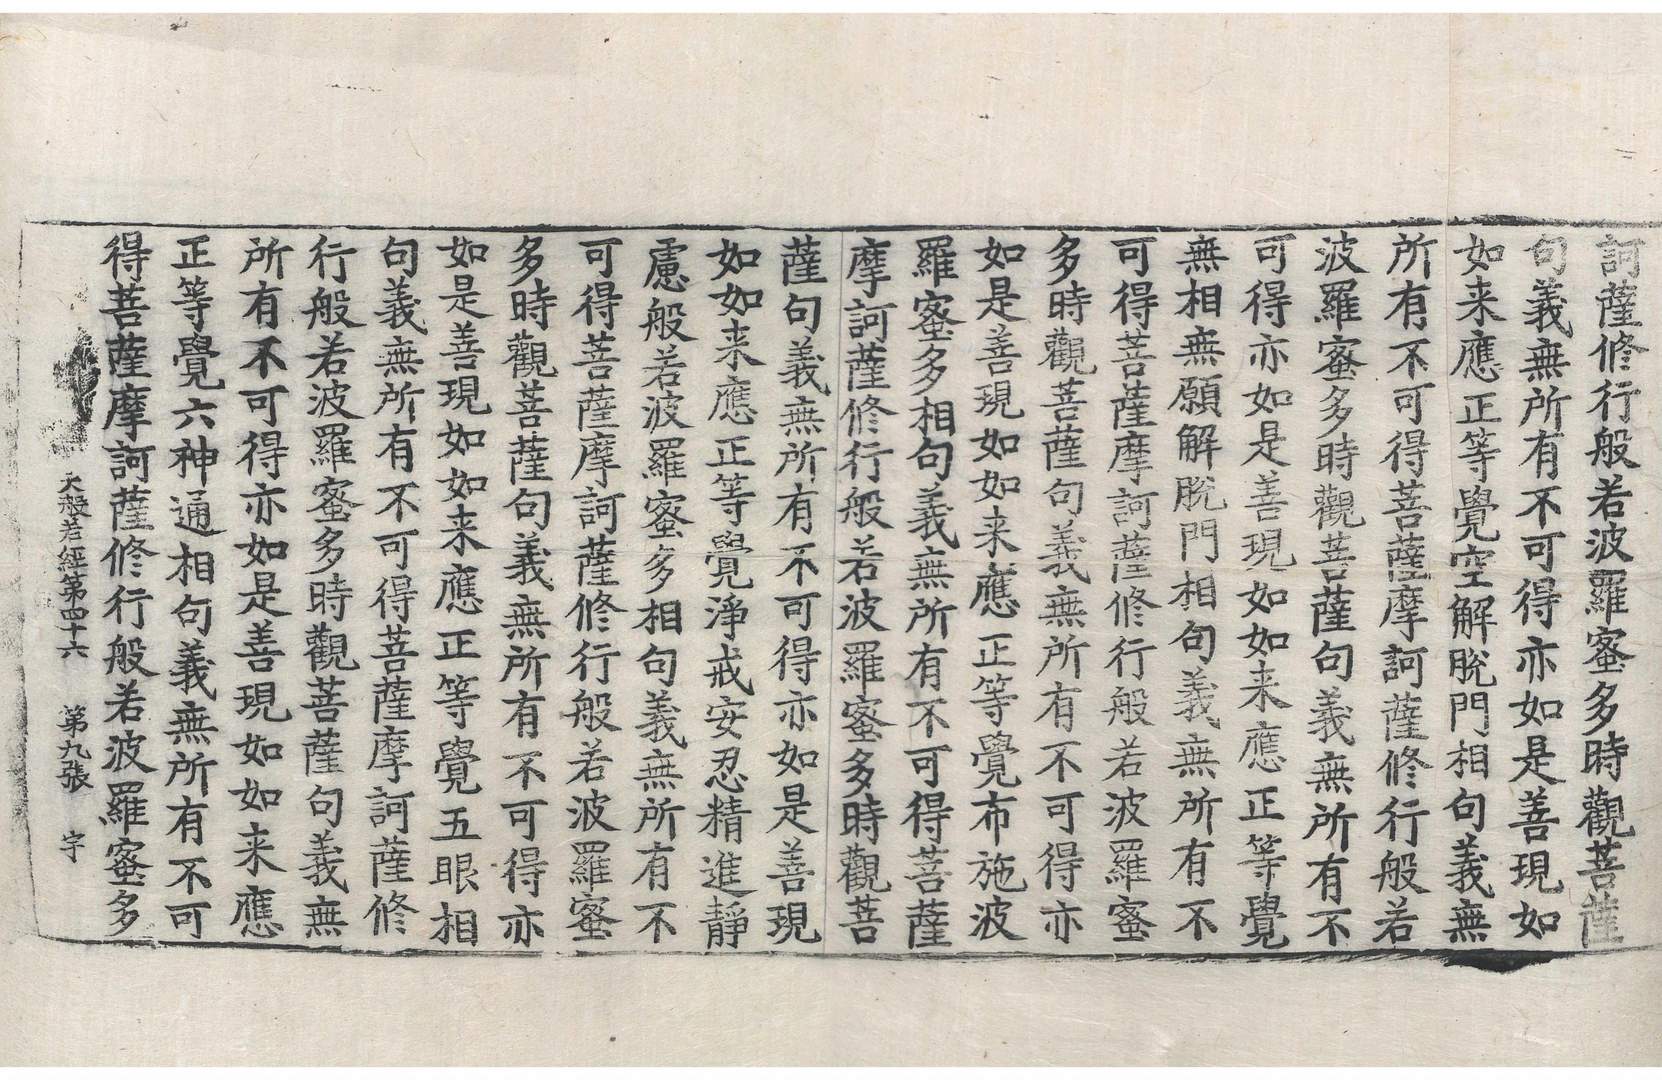 訶薩修行般若波羅蜜多時觀菩薩
句義無所有不可得亦如是善現如
如来應正等覺空解脫門相句義無
所有不可得菩薩摩訶薩修行般若
波羅蜜多時觀菩薩句義無所有不
可得亦如是善現如如来應正等覺
無相無願解脫門相句義無所有不
可得菩薩摩訶薩修行般若波羅蜜
多時觀菩薩句義無所有不可得亦
如是善現如如来應正等覺布施波
羅蜜多相句義無所有不可得菩薩
摩訶薩修行般若波羅蜜多時觀菩
薩句義無所有不可得亦如是善現
如如来應正等覺淨戒安忍精進靜
慮般若波羅蜜多相句義無所有不
可得菩薩摩訶薩修行般若波羅蜜
多時觀菩薩句義無所有不可得亦
如是善現如如来應正等覺五眼相
句義無所有不可得菩薩摩訶薩修
行般若波羅蜜多時觀菩薩句義無
所有不可得亦如是善現如如来應
正等覺六神通相句義無所有不可
得菩薩摩訶薩修行般若波羅蜜多
大般若經第四十六 第九張 字